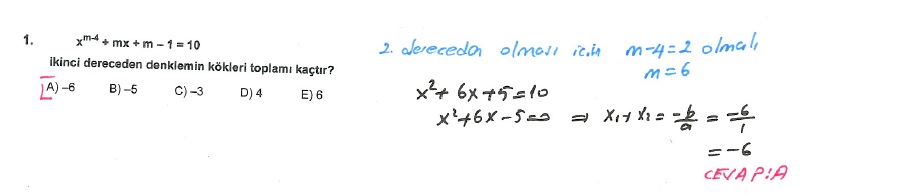 1. x^{m-4} + mx + m – 1 = 10
ikinci dereceden denklemin kökleri toplamı kaçtır?
A) –6 B) –5 C) –3 D) 4 E) 6
2. dereceden olması için m-4=2 olmalı
m=6
x²+6x+5=10
x²+6x-5=0 ⇒ x₁+x₂ = -b/a = -6/1
= -6
CEVAP:A